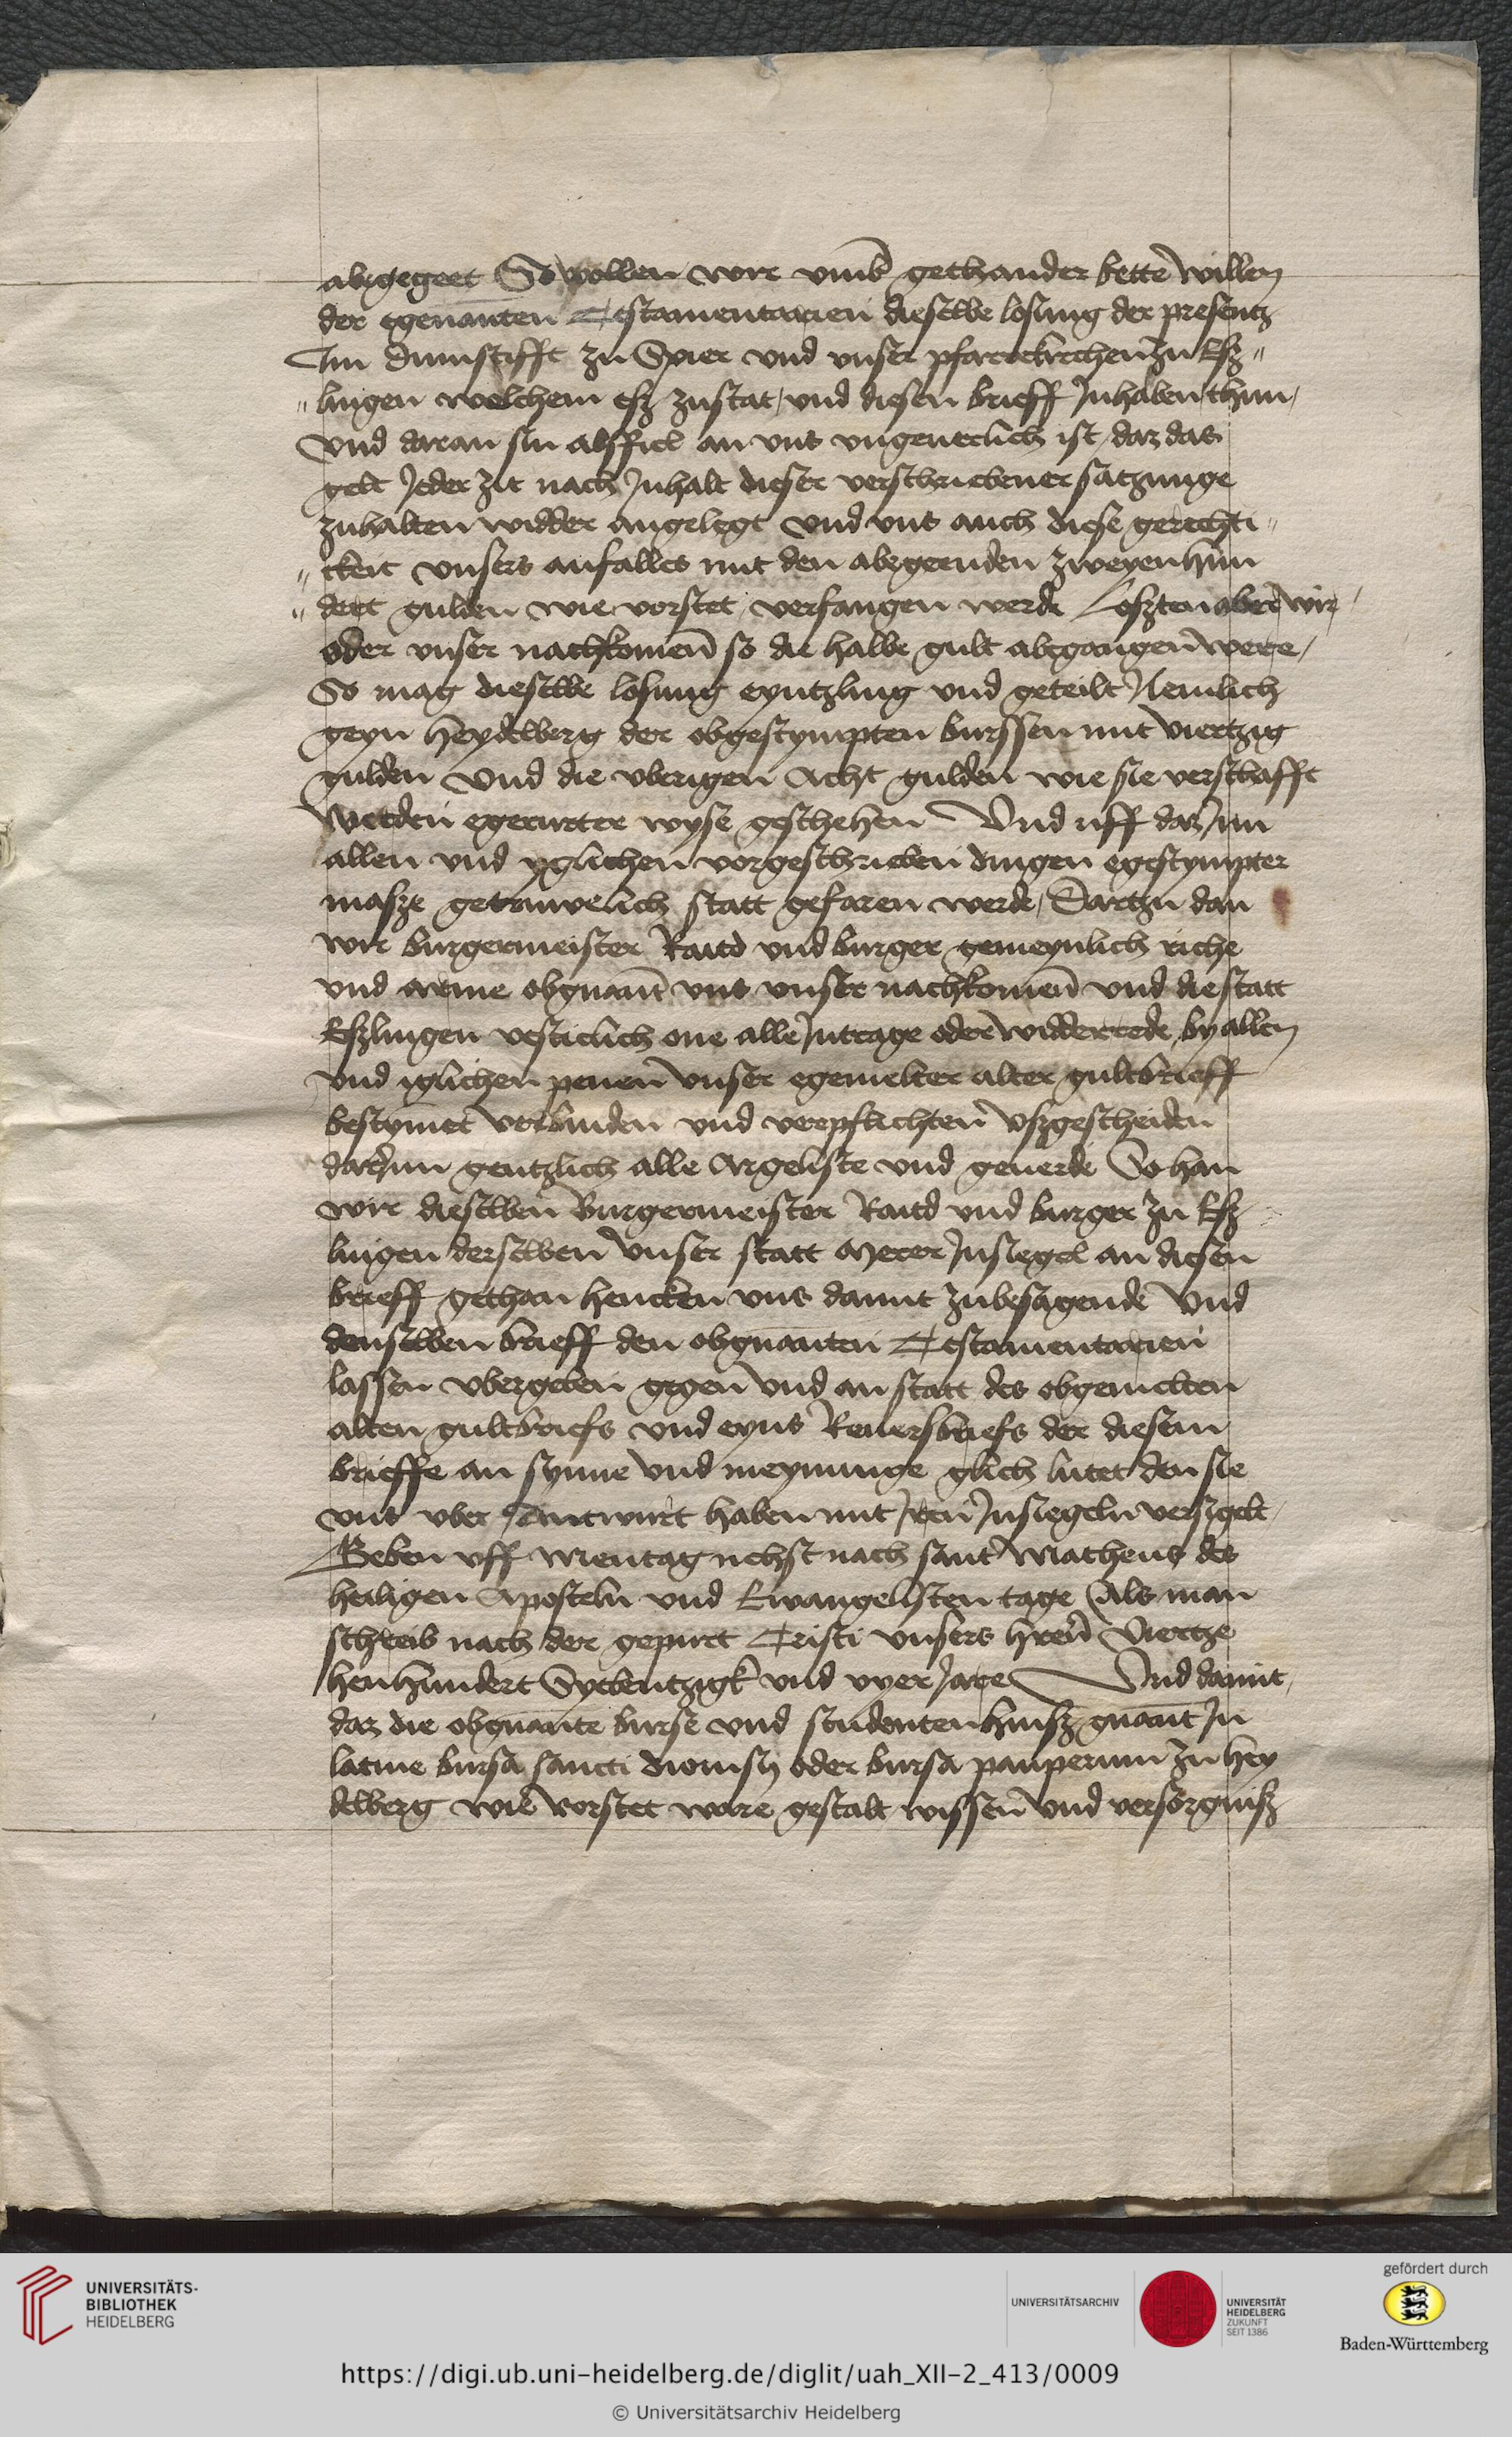 abgegeet So wollen wir vmb gethander bette willen
der egenanten Testamentarien dieselbe losung der presentz
Im dumstifft zu Spier vnd vnser pfarrekirchen zu Esz"
"lingen welchem esz zustat, vnd diesen brieff Inhaben thun,
vnd daran sin alsfiel an vns vngeuerlich ist, daz das
gelt Jeder zit nach Inhalt dieser verschriebener satzunge
zuhalten widder angelegt vnd vns auch diese gerechti"
"ckeit vnsers anfalles mit den abgeenden zweyen hun
"dert gulden wie vorstet verfangen werde Loszten aber wir
oder vnser nachkomen so die halbe gult abgangen were,
So mag dieselbe losung eyntzling vnd geteilt Nemlich
geyn Heydelberg der obgestympten burssen mit viertzig
gulden vnd die vberigen acht gulden wie sie verschafft
werden egerurter wyse geschehen Vnd vff daz Inn
allen vnd yglichen vorgeschrieben dingen egestympter
masze getruwelich statt gefaren werde, Dartzu dan
wir burgermeister Raitd vnd burger gemeynlich riche
vnd arme obgnant vns vnser nachkomen vnd die statt
Eszlingen vesticlich one alle Intrage oder widderrede, by allen
vnd iglichen penen vnser egemelter alter gultbrieff
bestymet verbinden vnd verpflichten vszgescheiden
darInn gentzlich alle Argeliste vnd geuerde So han
wir dieselben Burgermeister Raitd vnd burger zu Esz
lingen derselben vnser statt merer Insiegel an diesen
brieff gethan hencken vns damit zubesagende vnd
denselben brieff den obgnanten Testamentarien
lassen vbergeben gegen vnd an statt des obgemelten
alten gultbriefs vnd eyns Reuersbriefs der diesem
brieffe an synne vnd meynunge glich lutet den sie
vns vber Antwurt haben mit Iren Insiegeln versigelt,
Geben vff mentag nehst nach sant Matheus des
heiligen Aposteln vnd Ewangelisten tage Als man
schreib nach der gepurt Cristi vnsers hren viertze
henhundert Sybentzigk vnd vyer Jare Vnd damit,
daz die obgnante burse vnd studenten husz gnant In
latine bursa sancti dionisy oder bursa pauperum zu Hey
delberg wie vorstet ware gestalt wissen vnd versorgnisz
UNIVERSITÄTS-
BIBLIOTHEK
HEIDELBERG
UNIVERSITÄTSARCHIV
UNIVERSITÄT
HEIDELBERG
ZUKUNFT
SEIT 1386
gefördert durch
Baden-Württemberg
https://digi.ub.uni-heidelberg.de/diglit/uah_XII-2_413/0009
© Universitätsarchiv Heidelberg